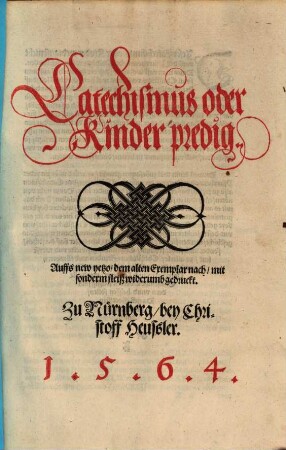 Catechismus oder
Kinder predig.
Auffs new yetzo/ dem alten Exemplar nach/ mit
sonderm fleiß widerumb gedruckt.
Zu Nürnberg/ bey Chri-
stoff Heussler.
1. 5. 6. 4.